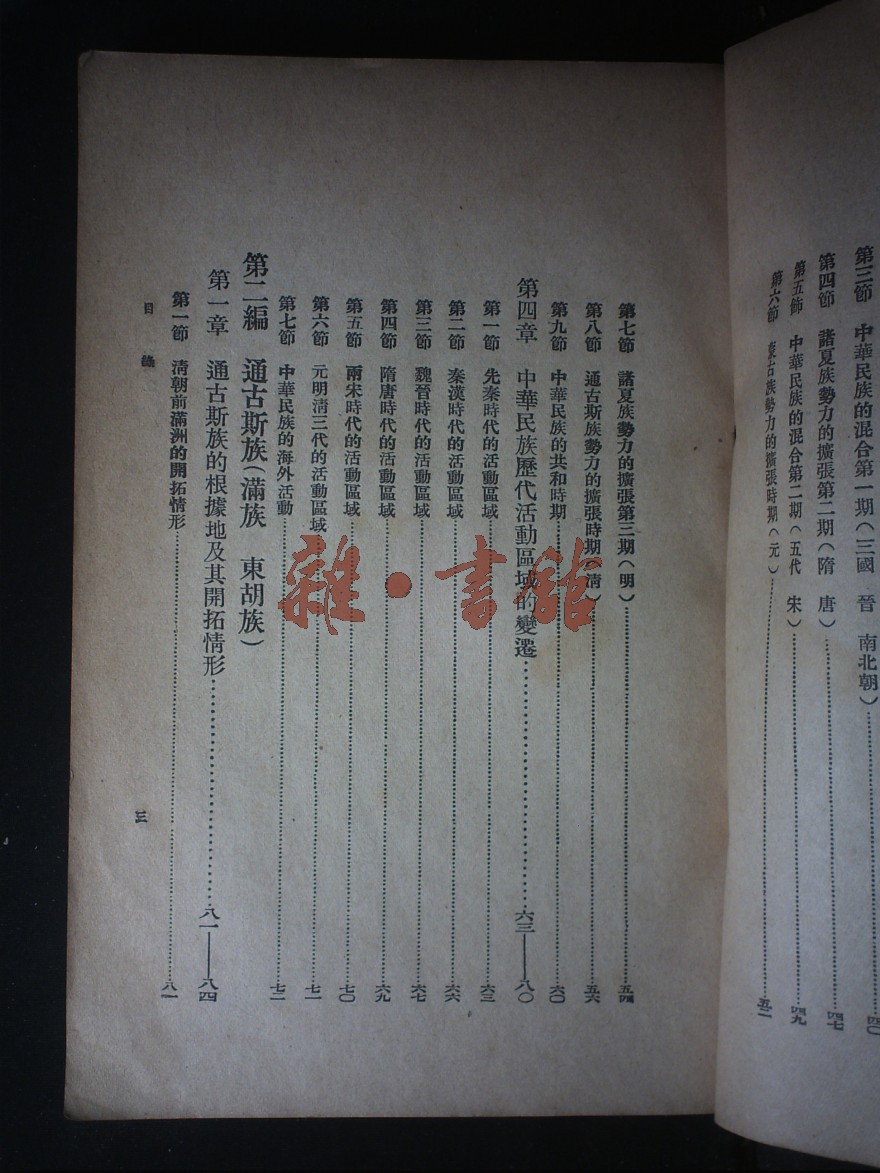 第三節 中華民族的混合第一期(三國 晉 南北朝)……四〇
第四節 諸夏族勢力的擴張第二期(隋 唐)……四七
第五節 中華民族的混合第二期(五代 宋)……四九
第六節 蒙古族勢力的擴張時期(元)……五二
第七節 諸夏族勢力的擴張第三期(明)……五四
第八節 通古斯族勢力的擴張時期(清)……五六
第九節 中華民族的共和時期……六〇
第四章 中華民族歷代活動區域的變遷……六三——八〇
第一節 先秦時代的活動區域……六三
第二節 秦漢時代的活動區域……六六
第三節 魏晉時代的活動區域……六七
第四節 隋唐時代的活動區域……六九
第五節 兩宋時代的活動區域……七〇
第六節 元明清三代的活動區域……七一
第七節 中華民族的海外活動……七二
第二編 通古斯族(滿族 東胡族)
第一章 通古斯族的根據地及其開拓情形……八一——八四
第一節 清朝前滿洲的開拓情形……八一
目錄 三
雜·書館